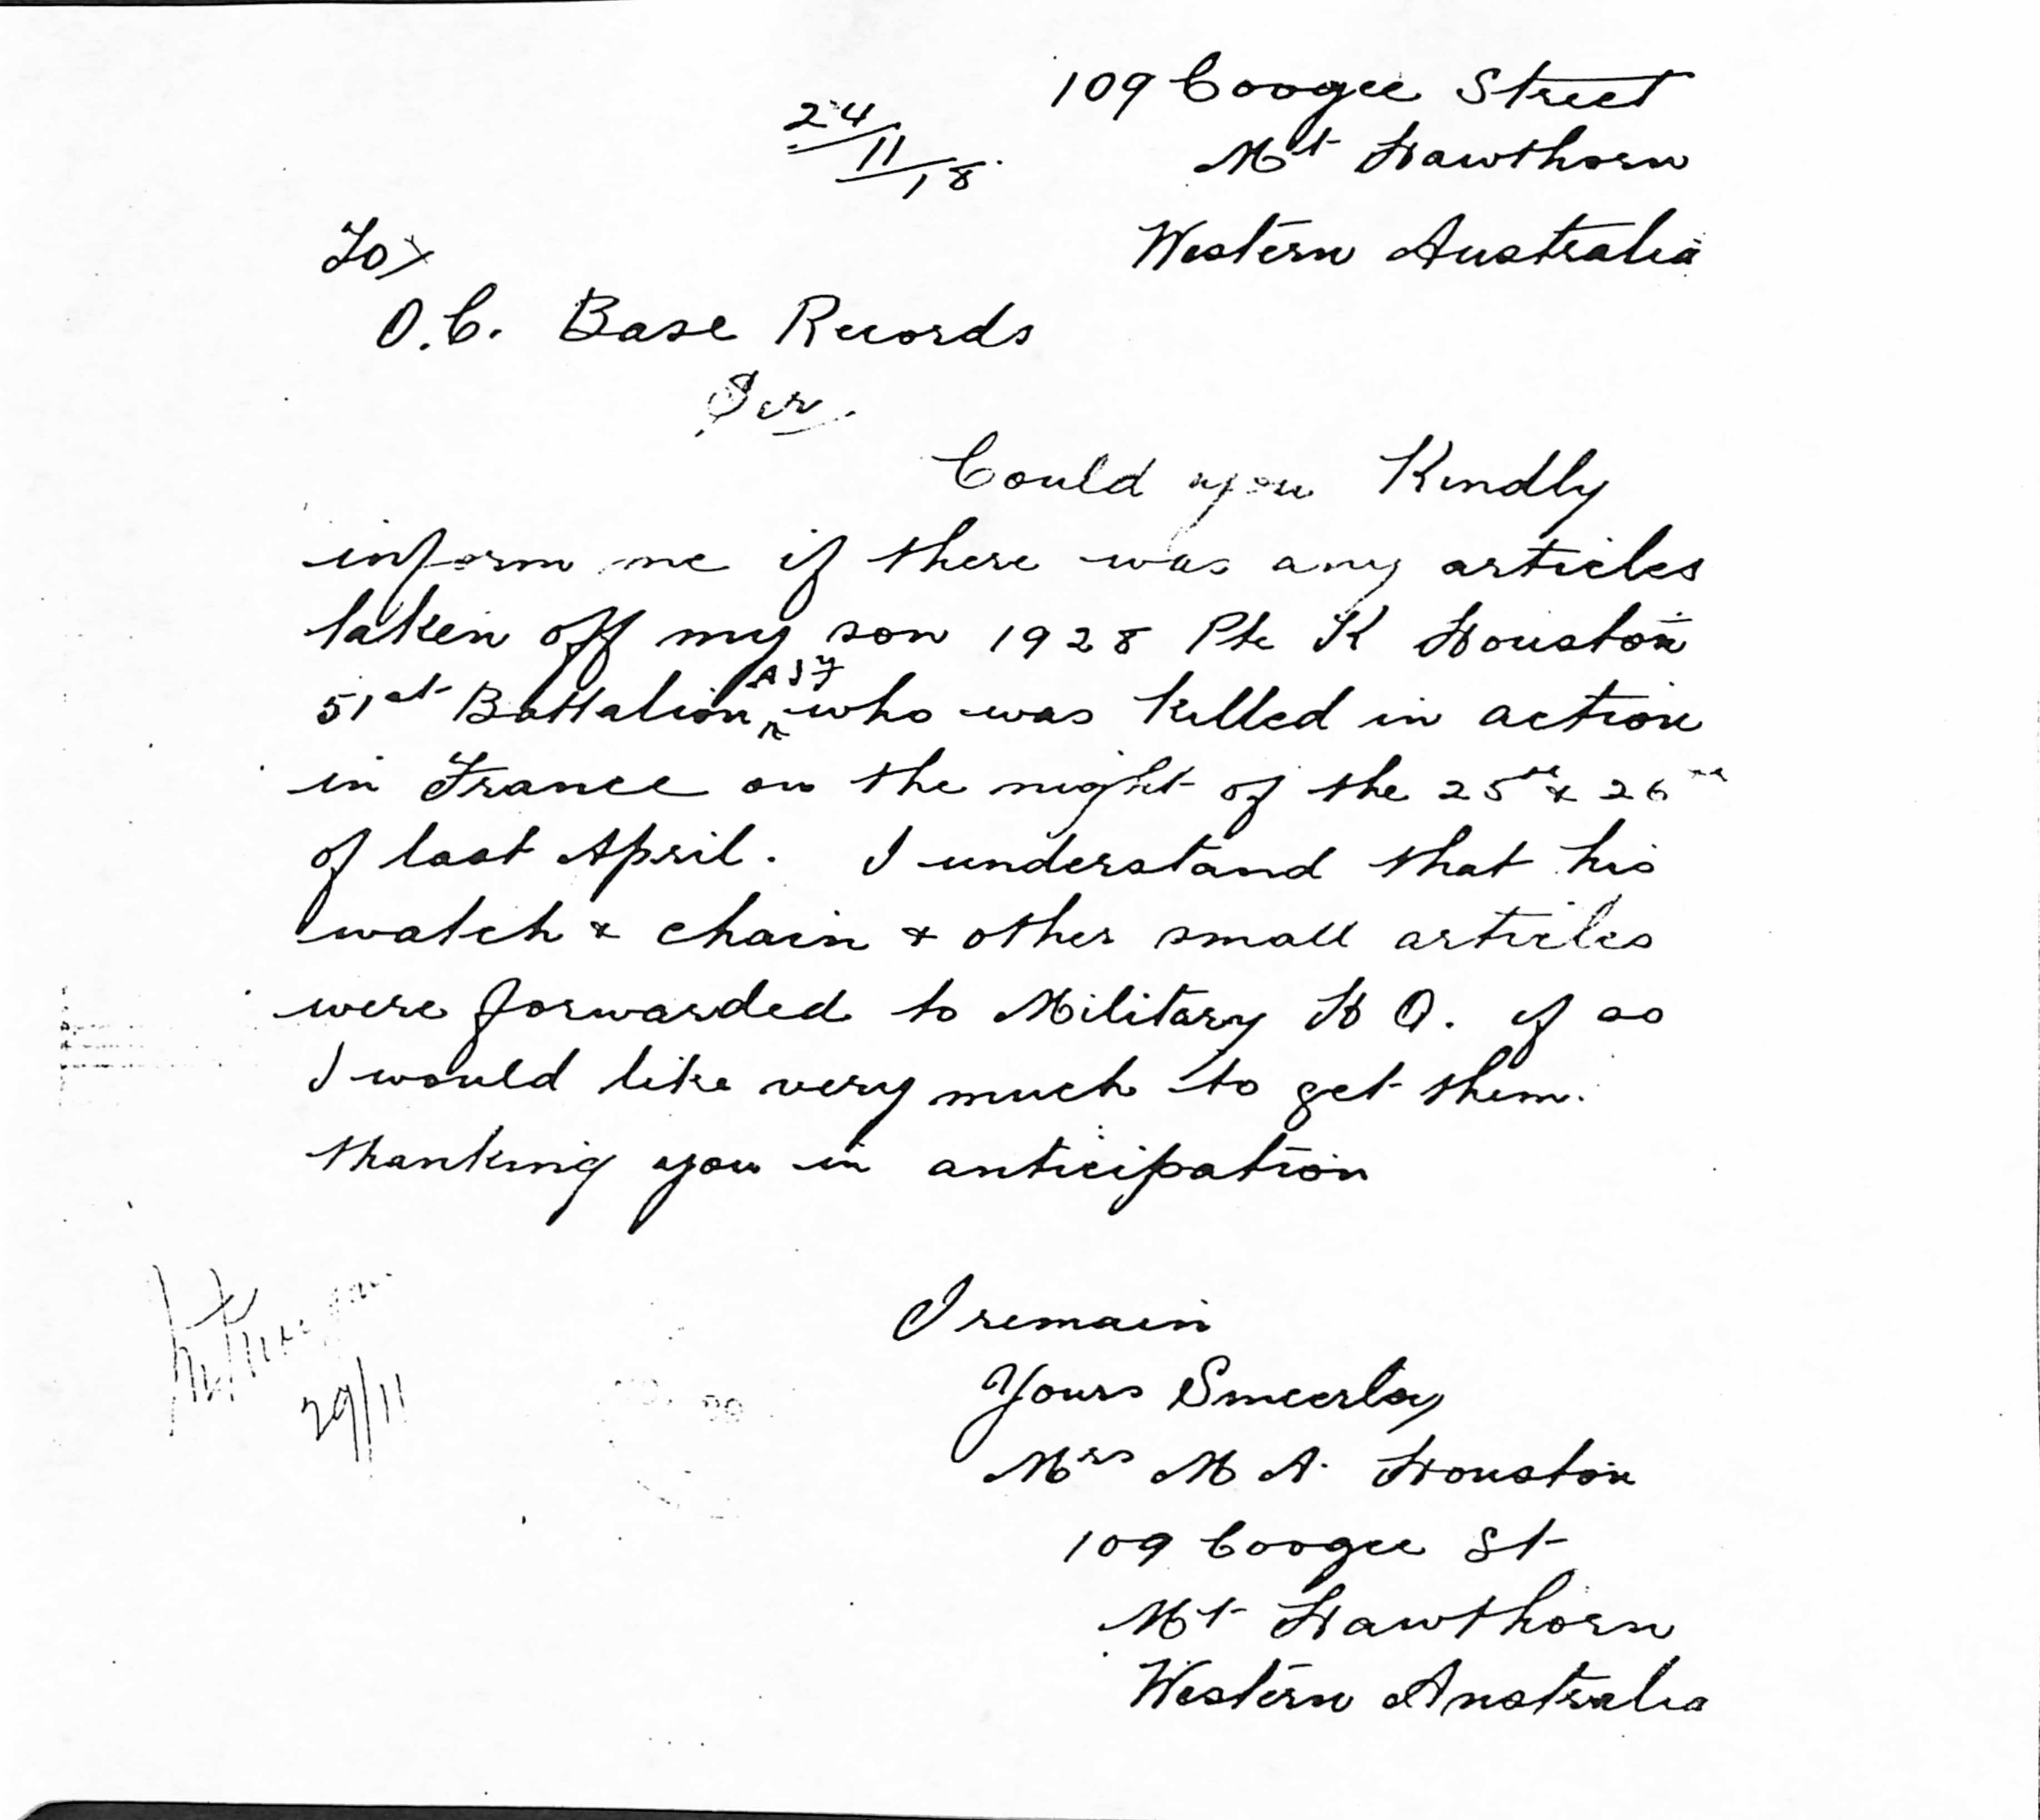 109 Coogee Street
24/11/18
Mt Hawthorn
Western Australia
To/
O.C. Base Records
Sir,
Could you Kindly
inform me if there was any articles
taken off my son 1928 Pte K Houston
51st Battalion AIF who was killed in action
in France on the night of the 25th & 26th
of last April. I understand that his
watch & chain & other small articles
were forwarded to Military H Q. if so
I would like very much to get them.
thanking you in anticipation
I remain
Yours Sincerley
Mrs M A. Houston
109 Coogee St
Mt Hawthorn
Western Australia
29/11